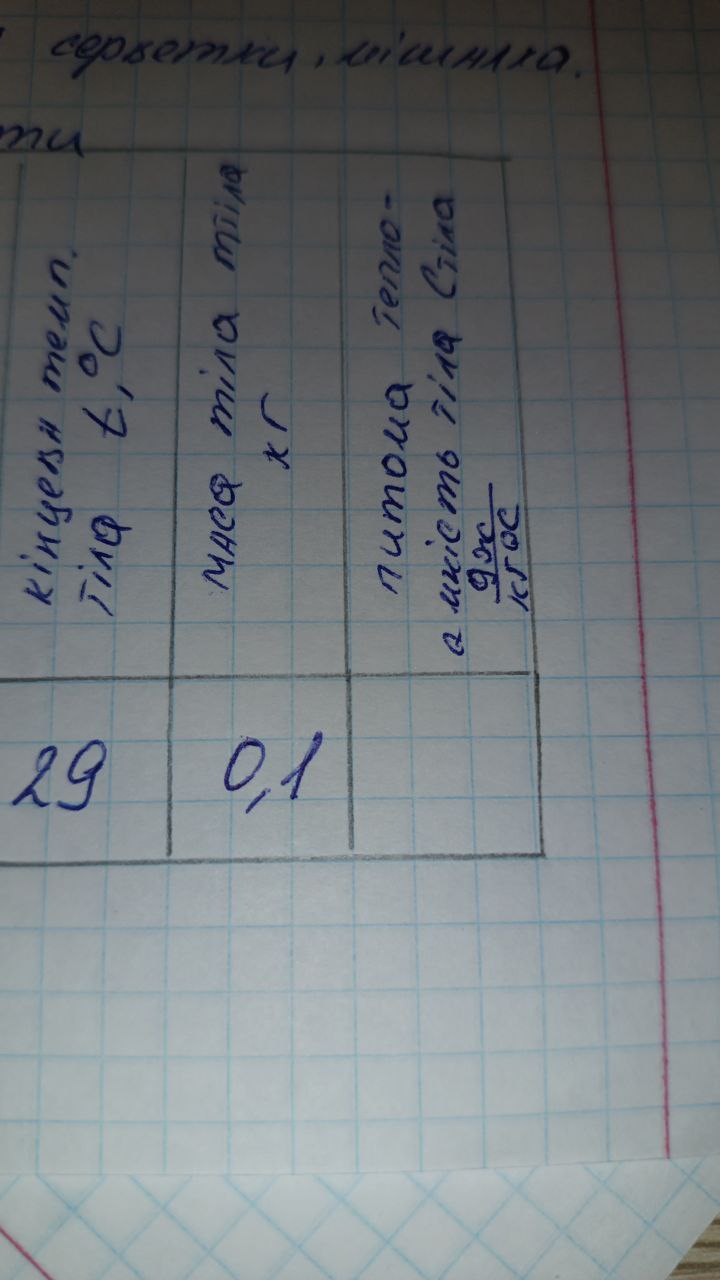 серветки, мішалка.
ти
кінцева темп.
тіла t, °C
маса тіла mтіла
кг
питома тепло-
ємність тіла Cтіла
Дж
кг °C
29
0,1